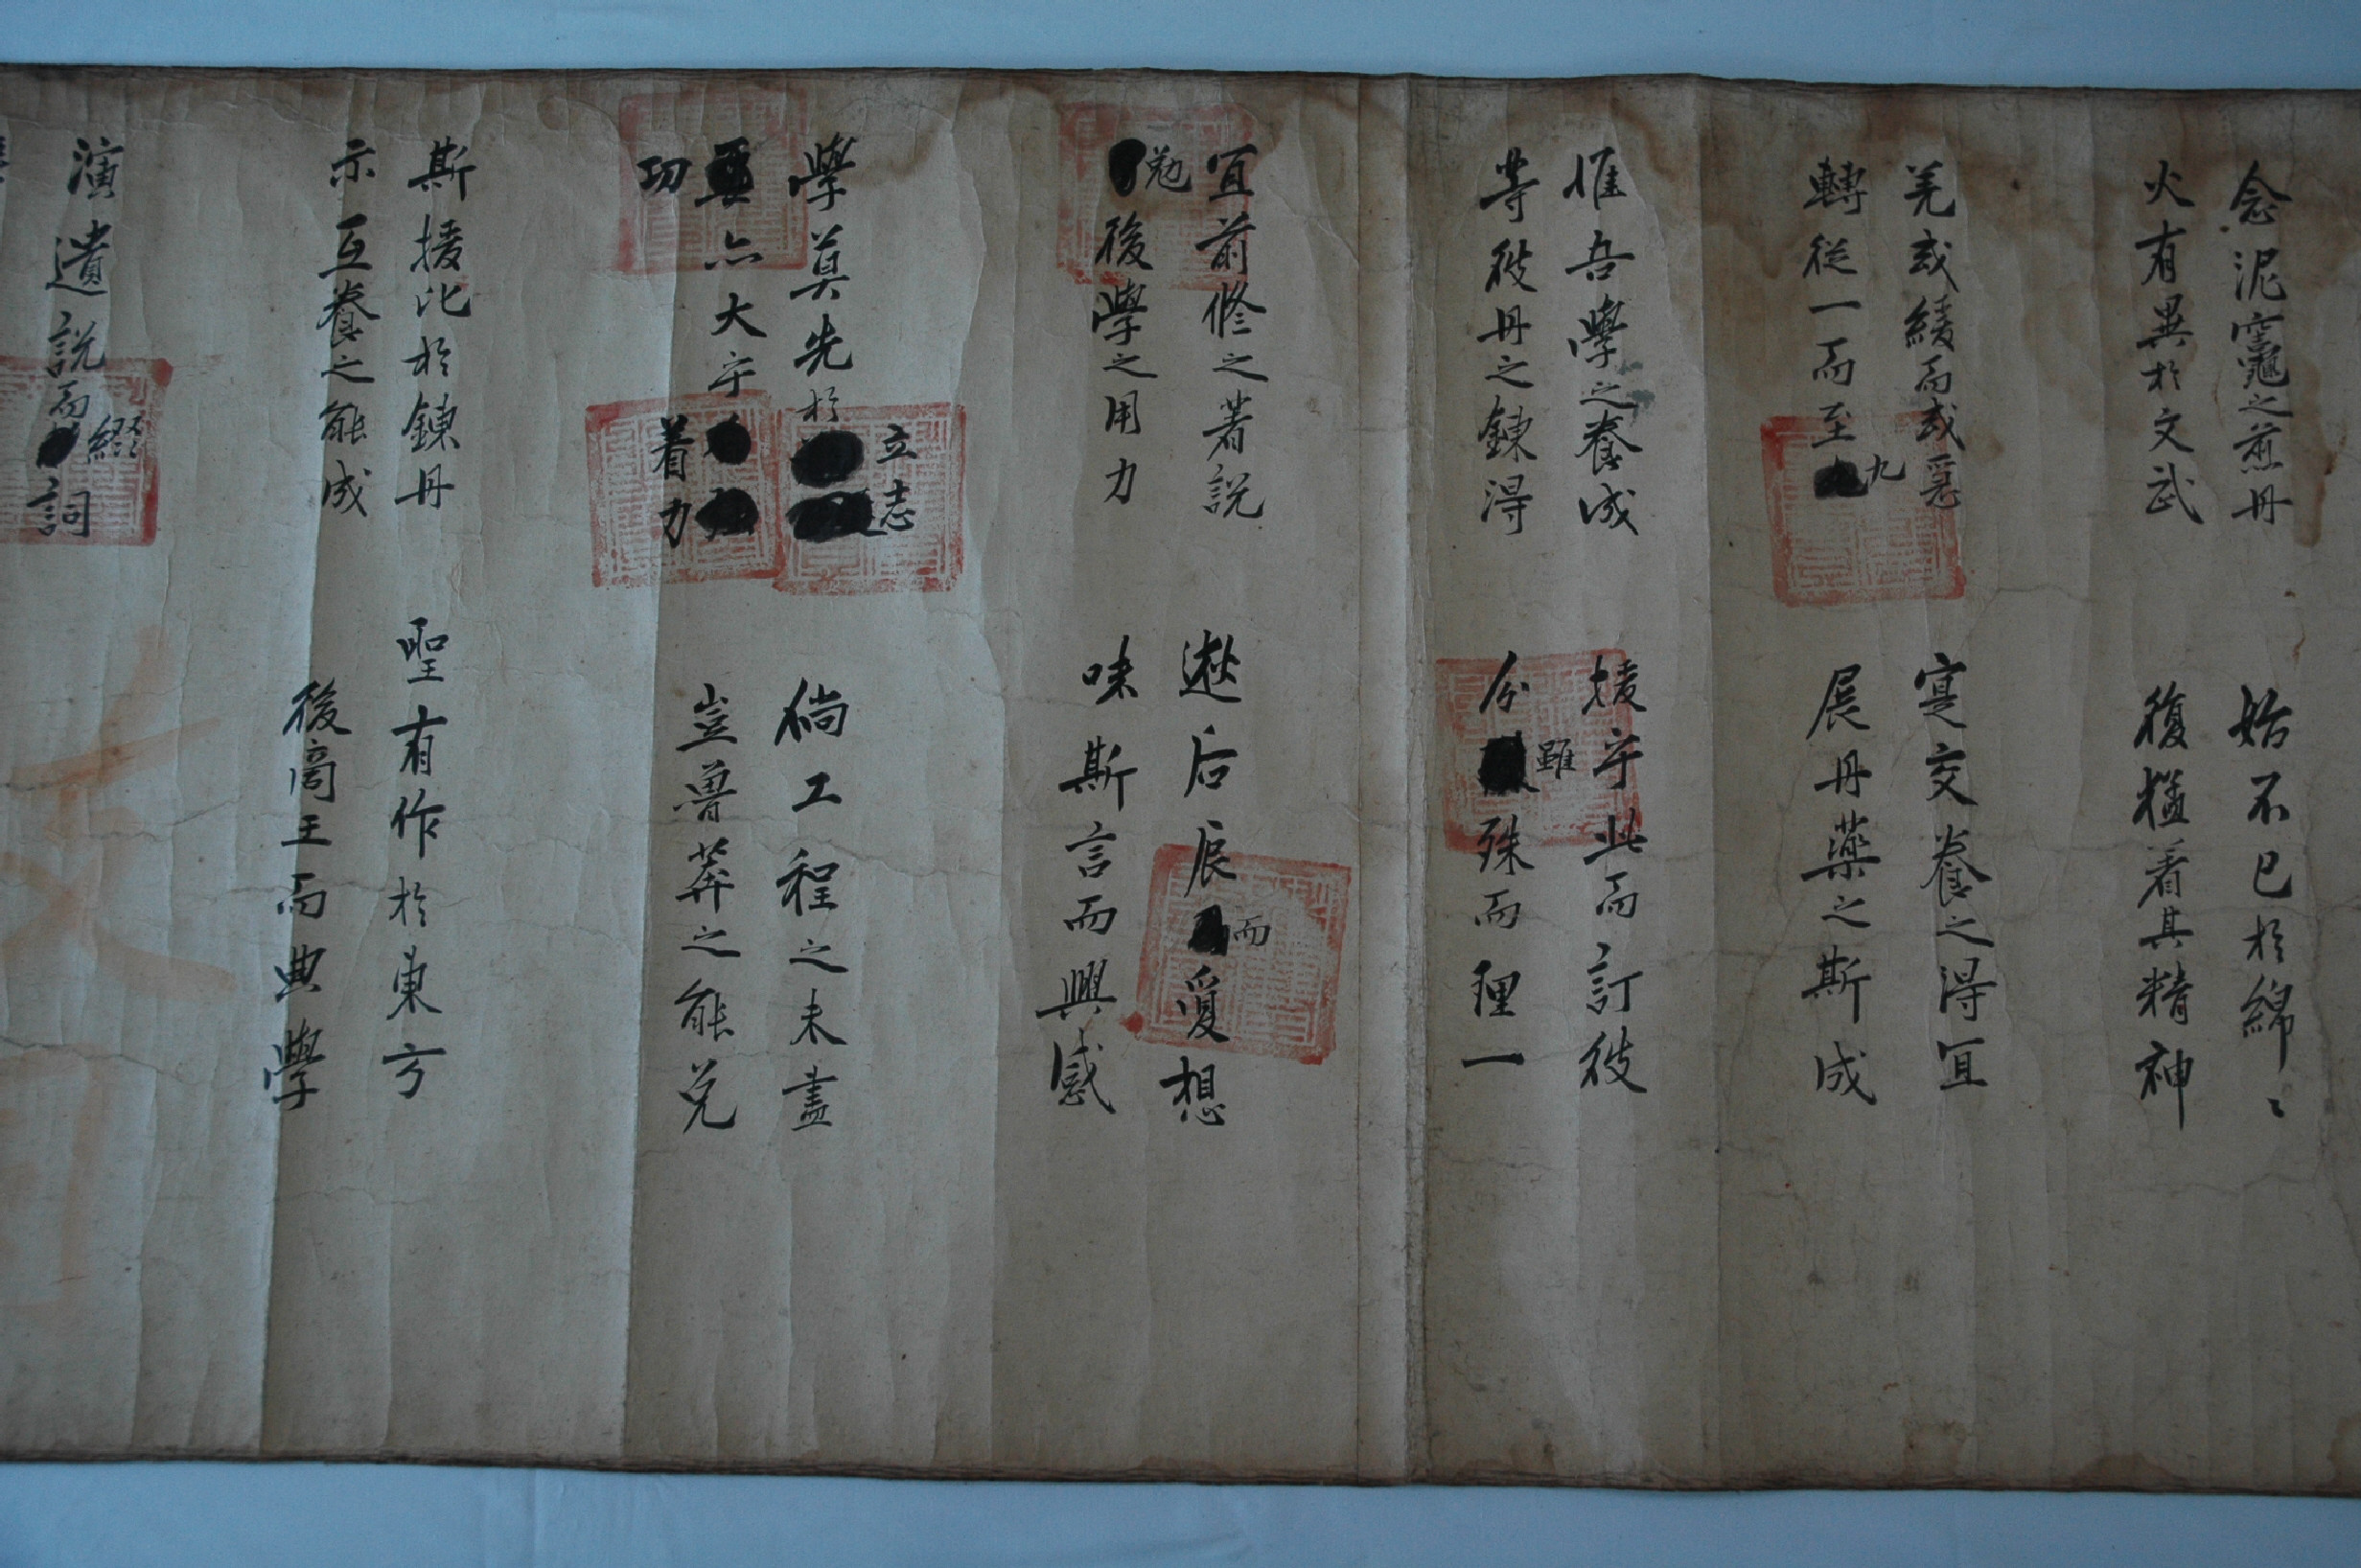 念泥窒竈之煎丹 始不已於綿〻
火有異於文武 復極着其精神
羌或緩而或急 寔交養之得宜
轉從一而至九 展丹藥之斯成
惟吾學之養成 援乎此而訂彼
等彼丹之鍊得 分雖殊而理一
宜前修之著說 逖后辰而爰想
勉後學之用力 味斯言而興感
學莫先於立志 倘工程之未盡
亦大乎着力 豈鹵莽之能兌
功
斯援比於鍊丹 聖有作於東方
示互養之能成 後啇王而典學
演遺說而綴詞